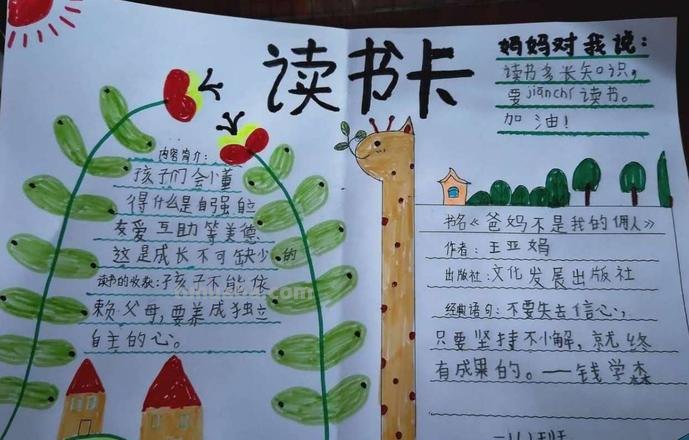 读书卡
妈妈对我说：
读书多长知识，
要jiānchí读书。
加油！
内容简介：
孩子们会小董
得什么是自强自立
友爱互助等美德
这是成长不可缺少的
读书的收获：孩子不能依
赖父母，要养成独立
自主的心。
书名《爸妈不是我的佣人》
作者：王亚妈
出版社：文化发展出版社
经典语句：不要失去信心，
只要坚持不小解，就终
有成果的。——钱学森